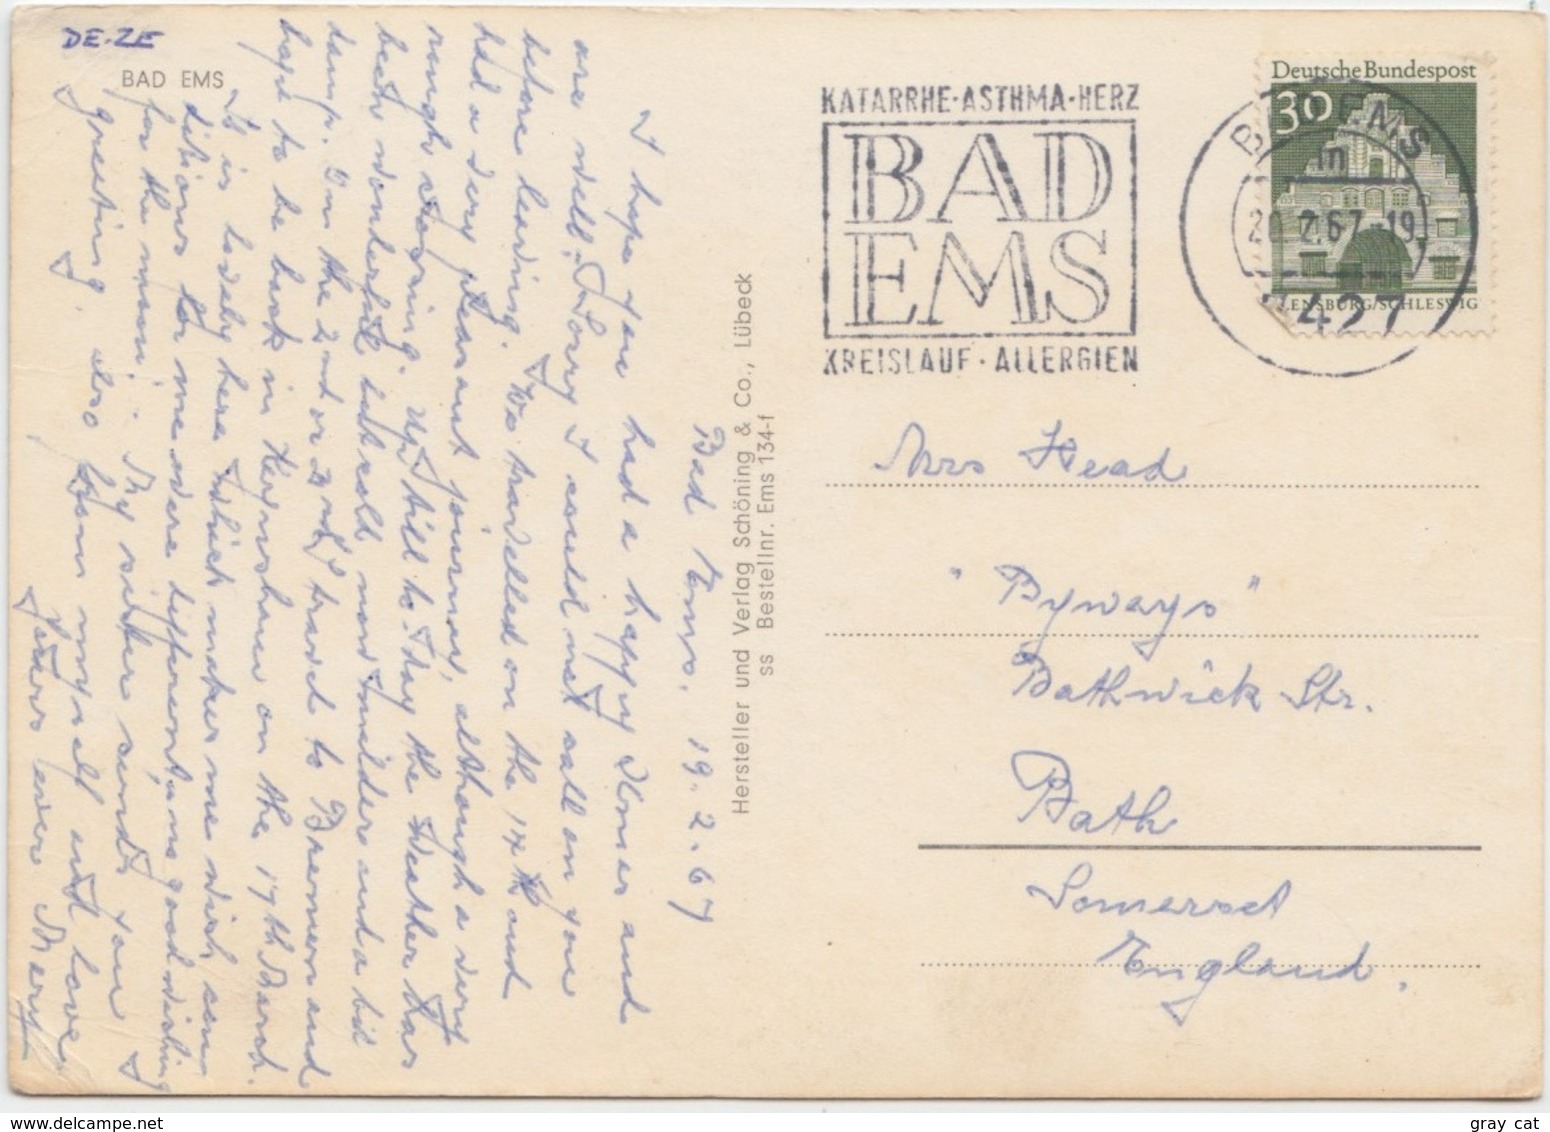 DE-ZE
BAD EMS
Bad Ems. 19.2.67
I hope you had a happy Xmas and
are well. Sorry I could not call on you
before leaving. We travelled on the 14th and
had a very pleasant journey, although a very
rough crossing. Up till to-day the weather has
been wonderful but cold, now milder and a bit
damp. On the 2nd or 3rd I travel to Bremen and
hope to be back in Keynsham on the 17th March.
It is lovely here which makes me wish con-
ditions for me were different, no good wishing
for the moon. My sister sends you
greeting also from myself and love.
Yours ever Mary
Hersteller und Verlag Schöning & Co., Lübeck
ss Bestellnr. Ems 134-f
KATARRHE·ASTHMA·HERZ
BAD
EMS
KREISLAUF·ALLERGIEN
Deutsche Bundespost
30
FLENSBURG/SCHLESWIG
BAD EMS
m
20.2.67-19
427
Mrs Head
"Byways"
Bathwick Str.
Bath
Somerset
England.
gray cat
www.delcampe.net